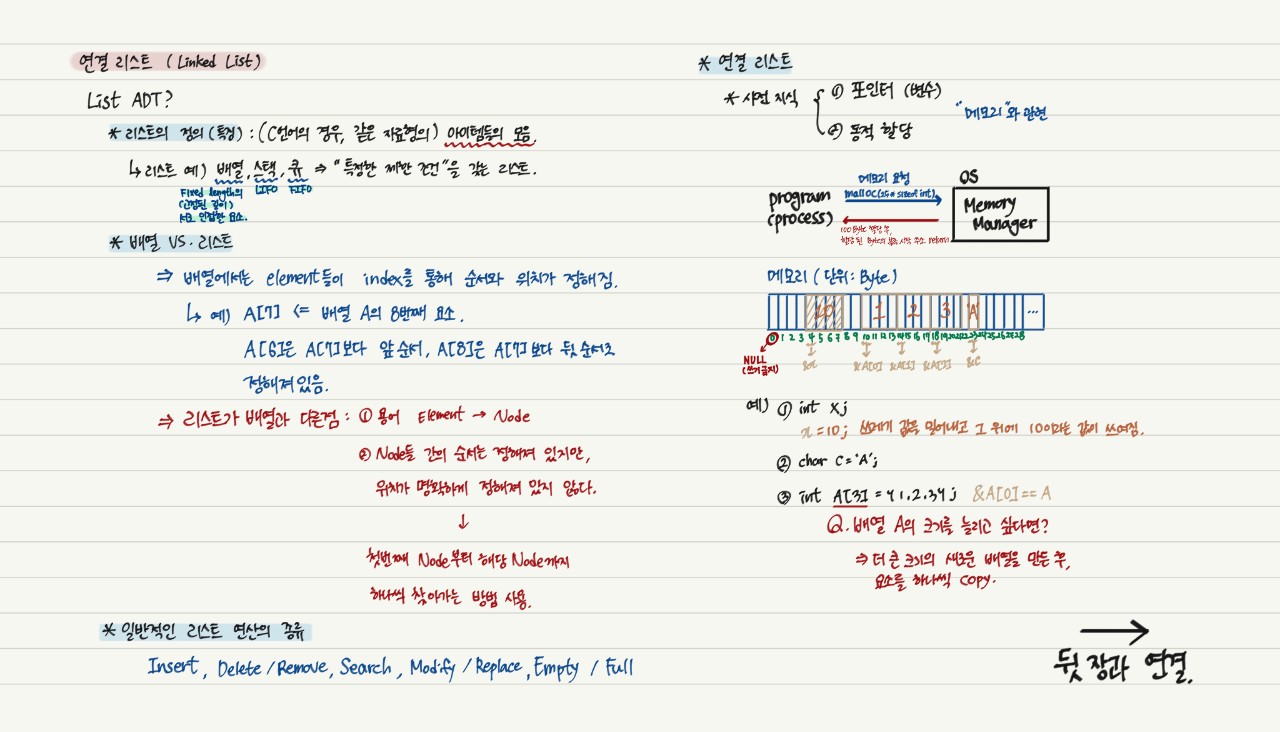 연결 리스트 (Linked List)
List ADT?
* 리스트의 정의(특징) : (C언어의 경우, 같은 자료형의) 아이템들의 모음.
↳ 리스트 예) 배열, 스택, 큐 ⇒ "특정한 제한 조건"을 갖는 리스트.
Fixed length의 LIFO FIFO
(고정된 길이)
서로 인접한 요소.
* 배열 VS. 리스트
⇒ 배열에서는 element들이 index를 통해 순서와 위치가 정해짐.
↳ 예) A[7] <= 배열 A의 8번째 요소.
A[6]은 A[7]보다 앞 순서, A[8]은 A[7]보다 뒷 순서로
정해져 있음.
⇒ 리스트가 배열과 다른점 : ① 용어 Element → Node
② Node들 간의 순서는 정해져 있지만,
위치가 명확하게 정해져 있지 않다.
↓
첫번째 Node부터 해당 Node까지
하나씩 찾아가는 방법 사용.
* 일반적인 리스트 연산의 종류
Insert, Delete / Remove, Search, Modify / Replace, Empty / Full
* 연결 리스트
* 사전 지식 { ① 포인터 (변수)
② 동적 할당
"메모리"와 관련
program
(process)
메모리 요청
malloc(25* sizeof int)
100 Byte 할당 후,
할당된 Byte의 시작 주소 return
OS
Memory
Manager
메모리 (단위 : Byte)
10 1 2 3 A ...
0 1 2 3 4 5 6 7 8 9 10 11 12 13 14 15 16 17 18 19 20 21 22 23 24 25 26 27 28
NULL
(쓰기 금지)
&x &A[0] &A[1] &A[2] &C
예) ① int x;
x = 10; 쓰레기 값을 밀어내고 그 위에 10이라는 값이 쓰여짐.
② char C = 'A';
③ int A[3] = {1, 2, 3}; &A[0] == A
Q. 배열 A의 크기를 늘리고 싶다면?
⇒ 더 큰 크기의 새로운 배열을 만든 후,
요소를 하나씩 copy.
→
뒷 장과 연결.